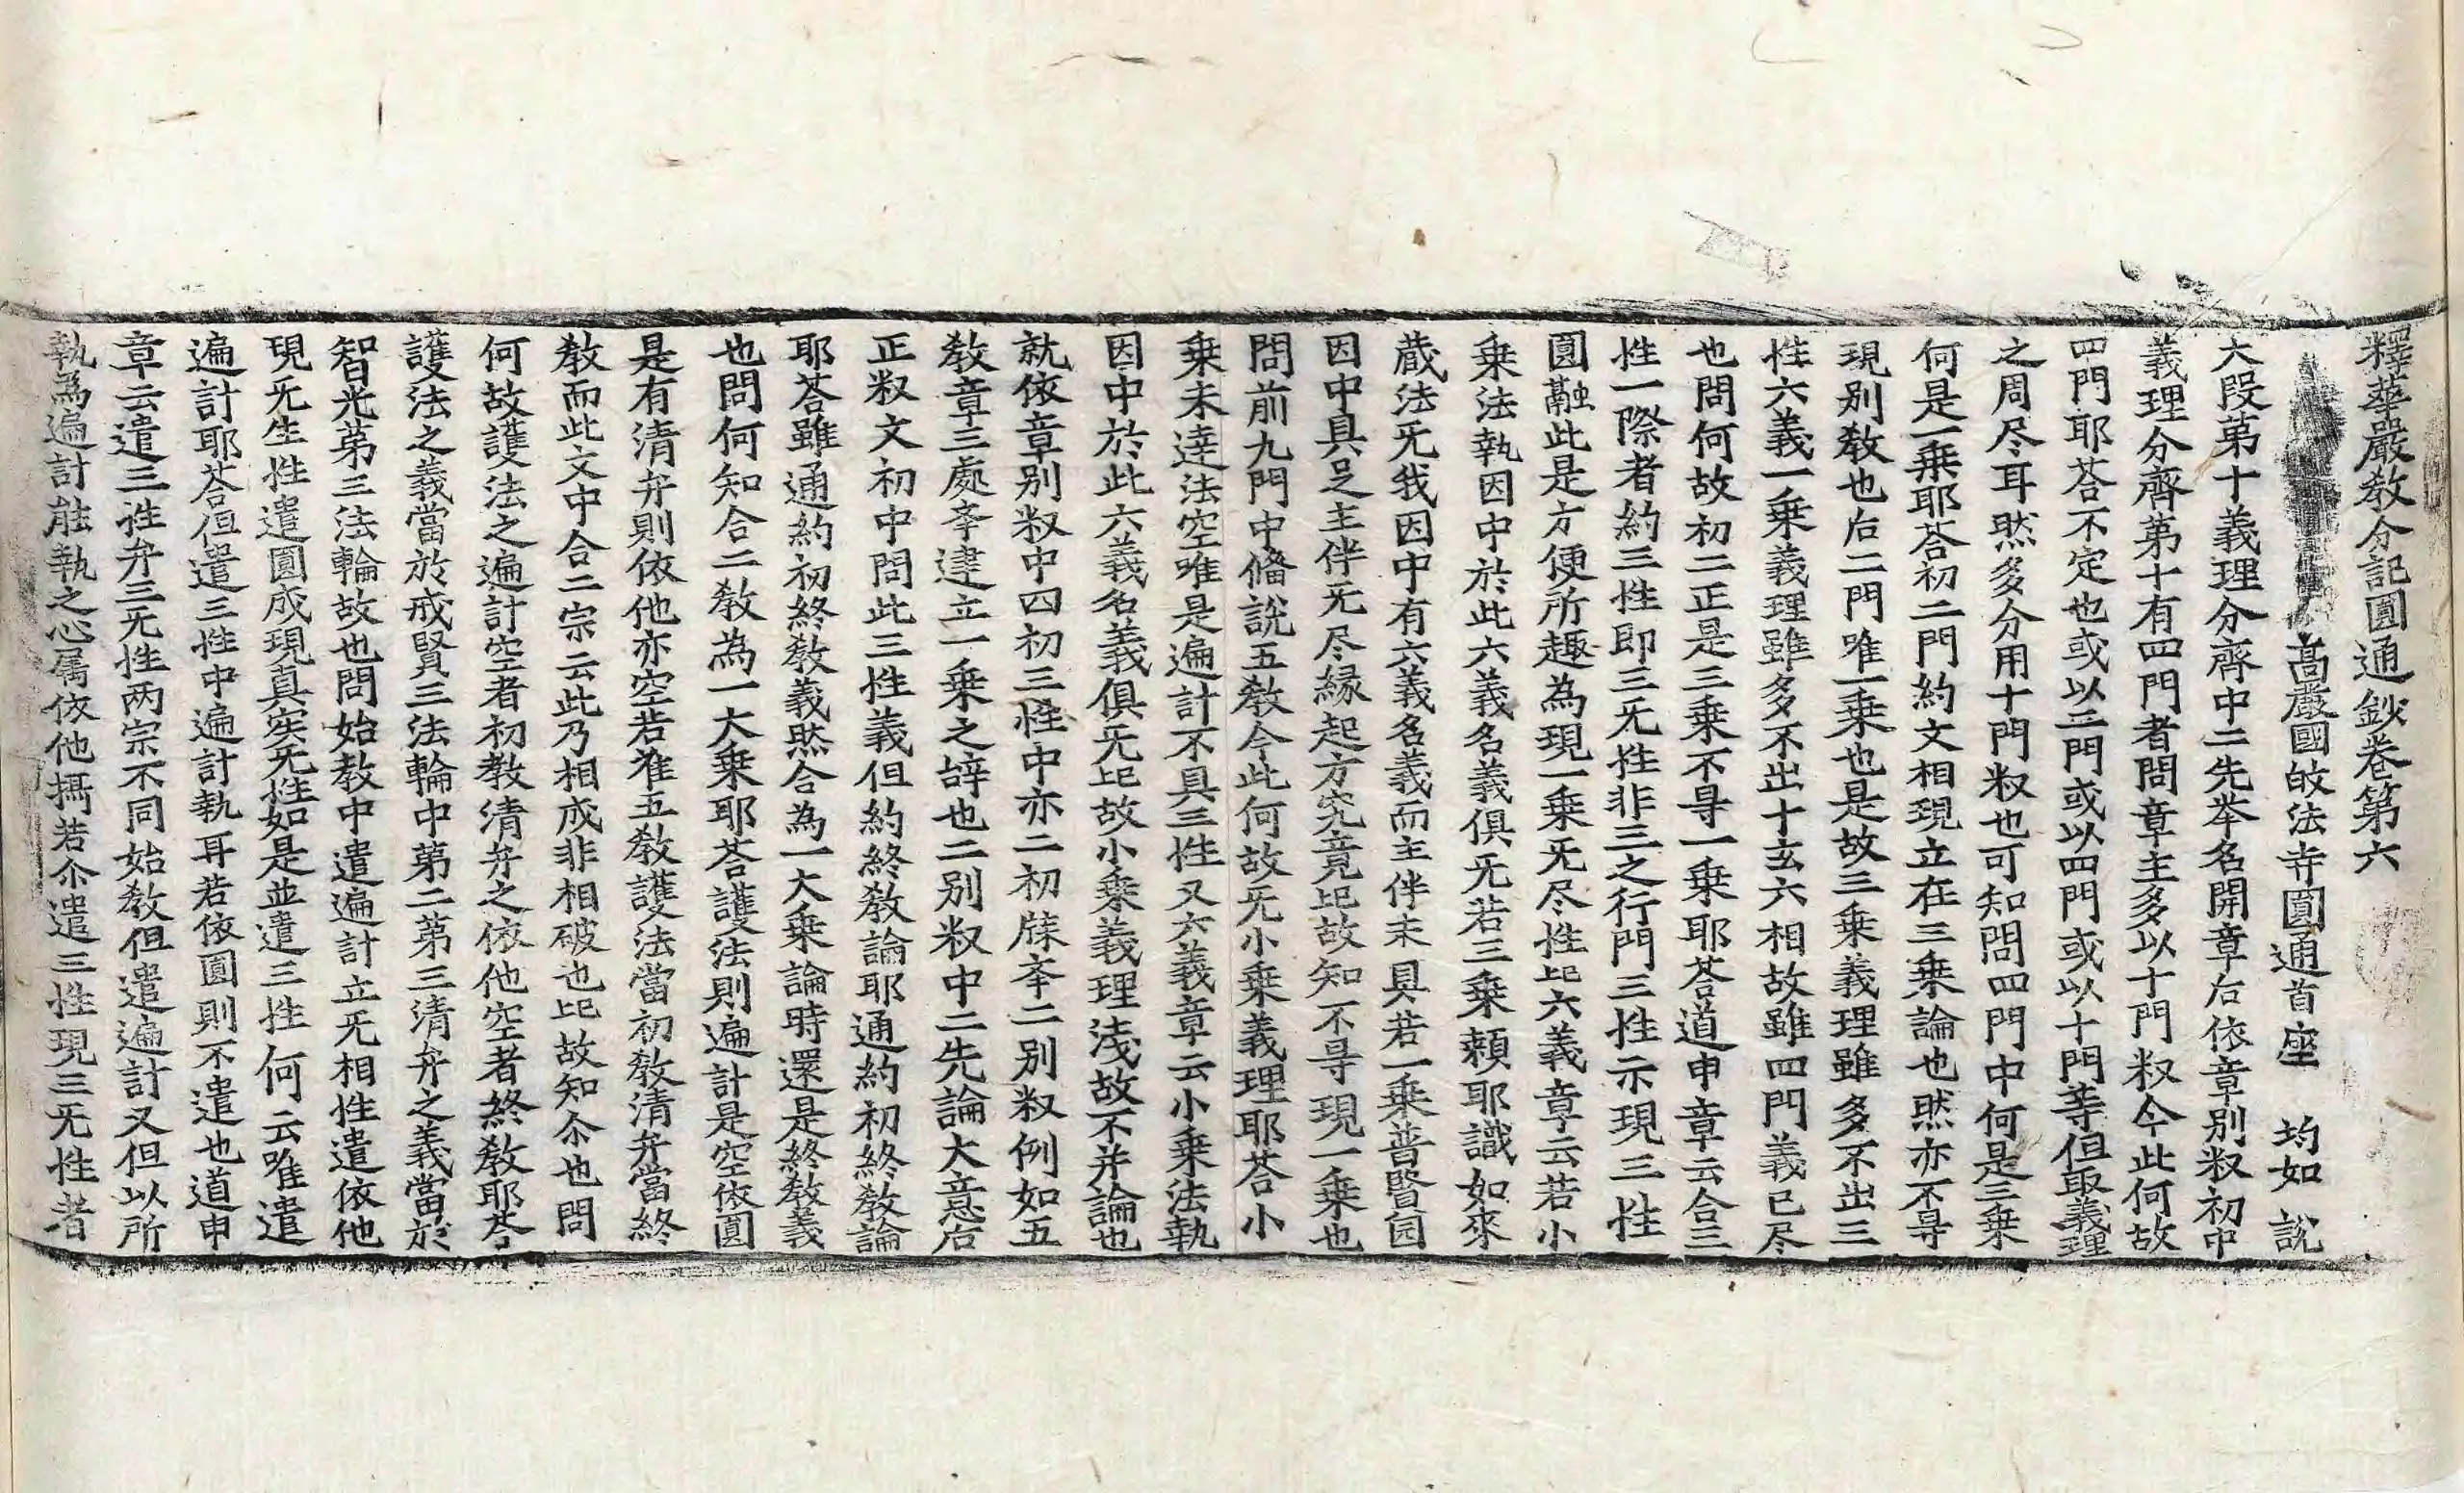 釋華嚴教分記圓通鈔卷第六
高嚴國㱕法寺圓通首座 均如 說
大段第十義理分齊中二先牟名開章后依章別㪅初中
義理分齊第十有四門者問章主多以十門㪅今此何故
四門耶荅不定也或以三門或以四門或以十門等但取義理
之周尽耳㷊多分用十門㪅也可知問四門中何是三乗
何是一乗耶荅初二門約文相現立在三乗論也㷊亦不㝵
現别教也后二門唯一乗也是故三乗義理雖多不出三
性六義一乗義理雖多不出十玄六相故雖四門義已尽
也問何故初二正是三乗不㝵一乗耶荅道申章云合三
性一際者約三性即三无性非三之行門三性示現三性
圓融此是方便所趣為現一乗无尽性㠯六義章云若小
乗法執因中於此六義名義俱无若三乗頼耶識如來
蔵法无我因中有六義名義而主伴未具若一乗普賢囙
因中具足主伴无尽縁起方究竟㠯故知不㝵現一乗也
問前九門中俻説五教今此何故无小乗義理耶荅小
乗未達法空唯是遍計不具三性又六義章云小乗法執
因中於此六義名義俱无㠯故小乗義理浅故不并論也
就依章別㪅中四初三性中亦二初牒牟二別㪅例如五
教章三處牟建立一乗之辝也二別㪅中二先論大意后
正㪅文初中問此三性義但約終教論耶通約初終教論
耶荅雖通約初終教義㷊合為一大乗論時還是終教義
也問何知合二教為一大乗耶荅護法則遍計是空依圓
是有清弁則依他亦空若准五教護法當初教清弁當終
教而此文中合二宗云此乃相成非相破也㠯故知尒也問
何故護法之遍計空者初教清弁之依他空者終教耶荅
護法之義當於戒賢三法輪中第二第三清弁之義當於
智光第三法輪故也問始教中遣遍計立无相性遣依他
現无生性遣圓成現真实无性如是並遣三性何云唯遣
遍計耶荅但遣三性中遍計執耳若依圓則不遣也道申
章云遣三性弁三无性两宗不同始教但遣遍計又但以所
執為遍計能執之心属依他攝若尒遣三性現三无性者